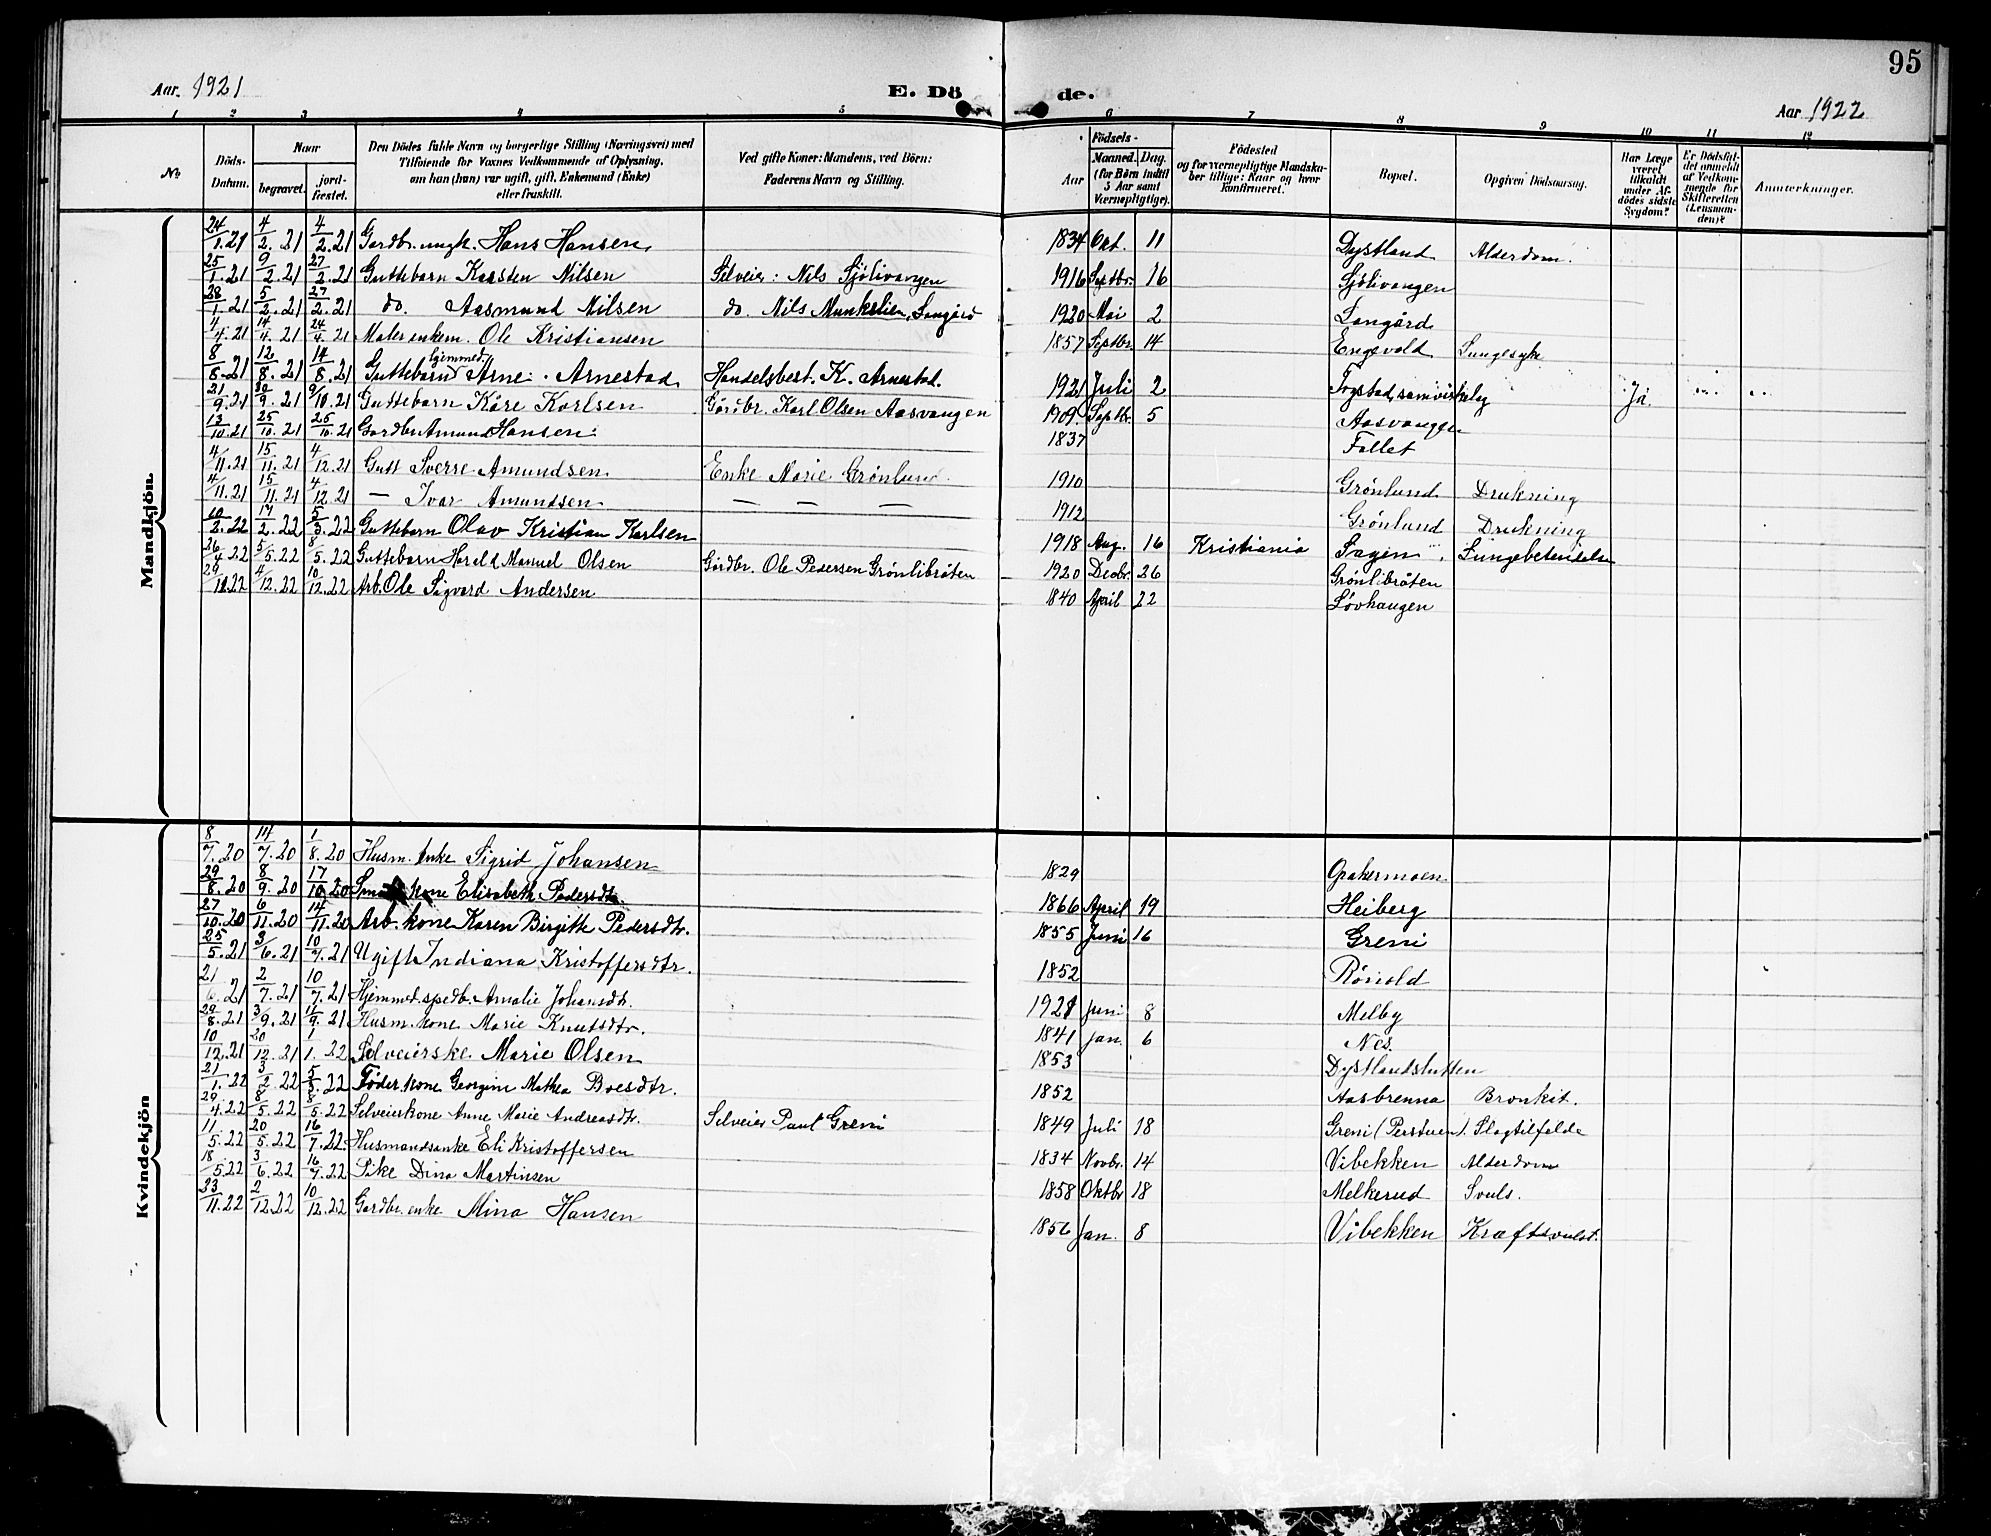 95
Aar. 1921
E. Dö de.
Aar 1922
1 2 3 4 5 6 7 8 9 10 11 12
No
Döds-Datum.
Naar
begravet.
jord-fæstet.
Den Dödes fulde Navn og borgerlige Stilling (Næringsvei) med
Tilföiende for Voxnes Vedkommende af Oplysning,
om han (hun) var ugift, gift, Enkemand (Enke)
eller fraskilt.
Ved gifte Koner: Mandens, ved Börn:
Faderens Navn og Stilling.
Födsels-
Aar
Maaned. Dag.
(for Börn indtil
5 Aar samt
Værnepligtige).
Födested
og for værnepligtige Mandska-
ber tillige: Naar og hvor
konfirmeret.
Bopæl.
Opgiven Dödsaarsag.
Har Læge
været
tilkaldt
under Af-
dödes sidste
Sygdom?
Er Dödsfal-
det anmeldt
af Vedkom-
mende for
Skifteretten
(Lensman-
den)?
Anmærkninger.
Mandkjön.
24/1.21 4/2.21 4/2.21 Gardbr. ungk. Hans Hansen 1834 Okt. 11 Dystland Alderdom.
25/1.21 9/2.21 27/2.21 Guttebarn Karsten Nilsen Selveier: Nils Sjölivangen 1916 Septbr. 16 Sjölivangen
28/1.21 5/2.21 27/2.21 do. Aasmund Nilsen do. Nils Munkelien, Langård 1920 Mai 2 Langård
1/4.21 14/4.21 24/4.21 Maler enkem. Ole Kristiansen 1857 Septbr. 14 Engsvold Lungesyke
8/8.21 12/8.21 14/8.21 Guttebarn hjemmed. Arne Arnestad Handelsbest. K. Arnestad. 1921 Juli 2 Fogstad samvirkelag Ja.
21/9.21 30/9.21 9/10.21 Guttebarn Kåre Karlsen Gårdbr. Karl Olsen Aasvangen 1909 Septbr. 5 Aasvangen
13/10.21 25/10.21 25/10.21 Gardbr. Amund Hansen 1837 Fallet
4/11.21 15/11.21 4/12.21 Gutt Sverre Amundsen Enke Marie Grönlund 1910 Grönlund Drukning
4/11.21 15/11.21 4/12.21 — Ivar Amundsen — — — 1912 Grönlund Drukning
10/2.22 17/2.22 5/3.22 Guttebarn Olav Kristian Karlsen 1918 Aug. 16 Kristiania Sagen Lungebetendelse
26/4.22 5/5.22 8/5.22 Guttebarn Harald Manuel Olsen Gårdbr. Ole Pedersen Grönlibråten 1920 Decbr. 26 Grönlibråten
29/11.22 4/12.22 10/12.22 Arb. Ole Sigvard Andersen 1840 April 22 Lövhaugen
Kvindekjön
8/7.20 14/7.20 1/8.20 Husm. enke Sigrid Johansen 1829 Opakermoen
29/8.20 8/9.20 17/10.20 kone Elisabeth Pedersdtr. 1866 April 19 Heiberg
27/10.20 6/11.20 14/11.20 Arb. kone Karen Birgitte Pedersdtr. 1855 Juni 16 Greni
25/5.21 3/6.21 10/7.21 Ugift Indiana Kristoffersdtr. 1852 Rönold
21/6.21 2/7.21 10/7.21 Hjemmed. spedb. Amalie Johansdtr. 1921 Juni 8 Melby
29/8.21 3/9.21 11/9.21 Husm. kone Marie Knutsdtr. 1841 Jan. 6 Nes.
10/12.21 20/12.21 1/1.22 Selveierske Marie Olsen 1853 Dystlandshutten
21/1.22 3/2.22 5/3.22 Föder. kone Georgine Mathea Boesdtr. 1852 Aasbrenna Bronkit.
29/4.22 8/5.22 8/5.22 Selveierkone Anne Marie Andreasdtr. Selveier Paul Greni 1849 Juli 18 Greni (Perstuen). Slagtilfelde
11/5.22 20/5.22 16/7.22 Husmandsenke Eli Kristoffersen 1834 Novbr. 14 Vibekken Alderdom
18/5.22 3/6.22 16/7.22 Pike Dina Martinsen 1858 Oktbr 18 Melkerud Svuls.
23/11.22 2/12.22 10/12.22 Gardbr. enke Mina Hansen 1856 Jan. 8 Vibekken Kræftsvulst.